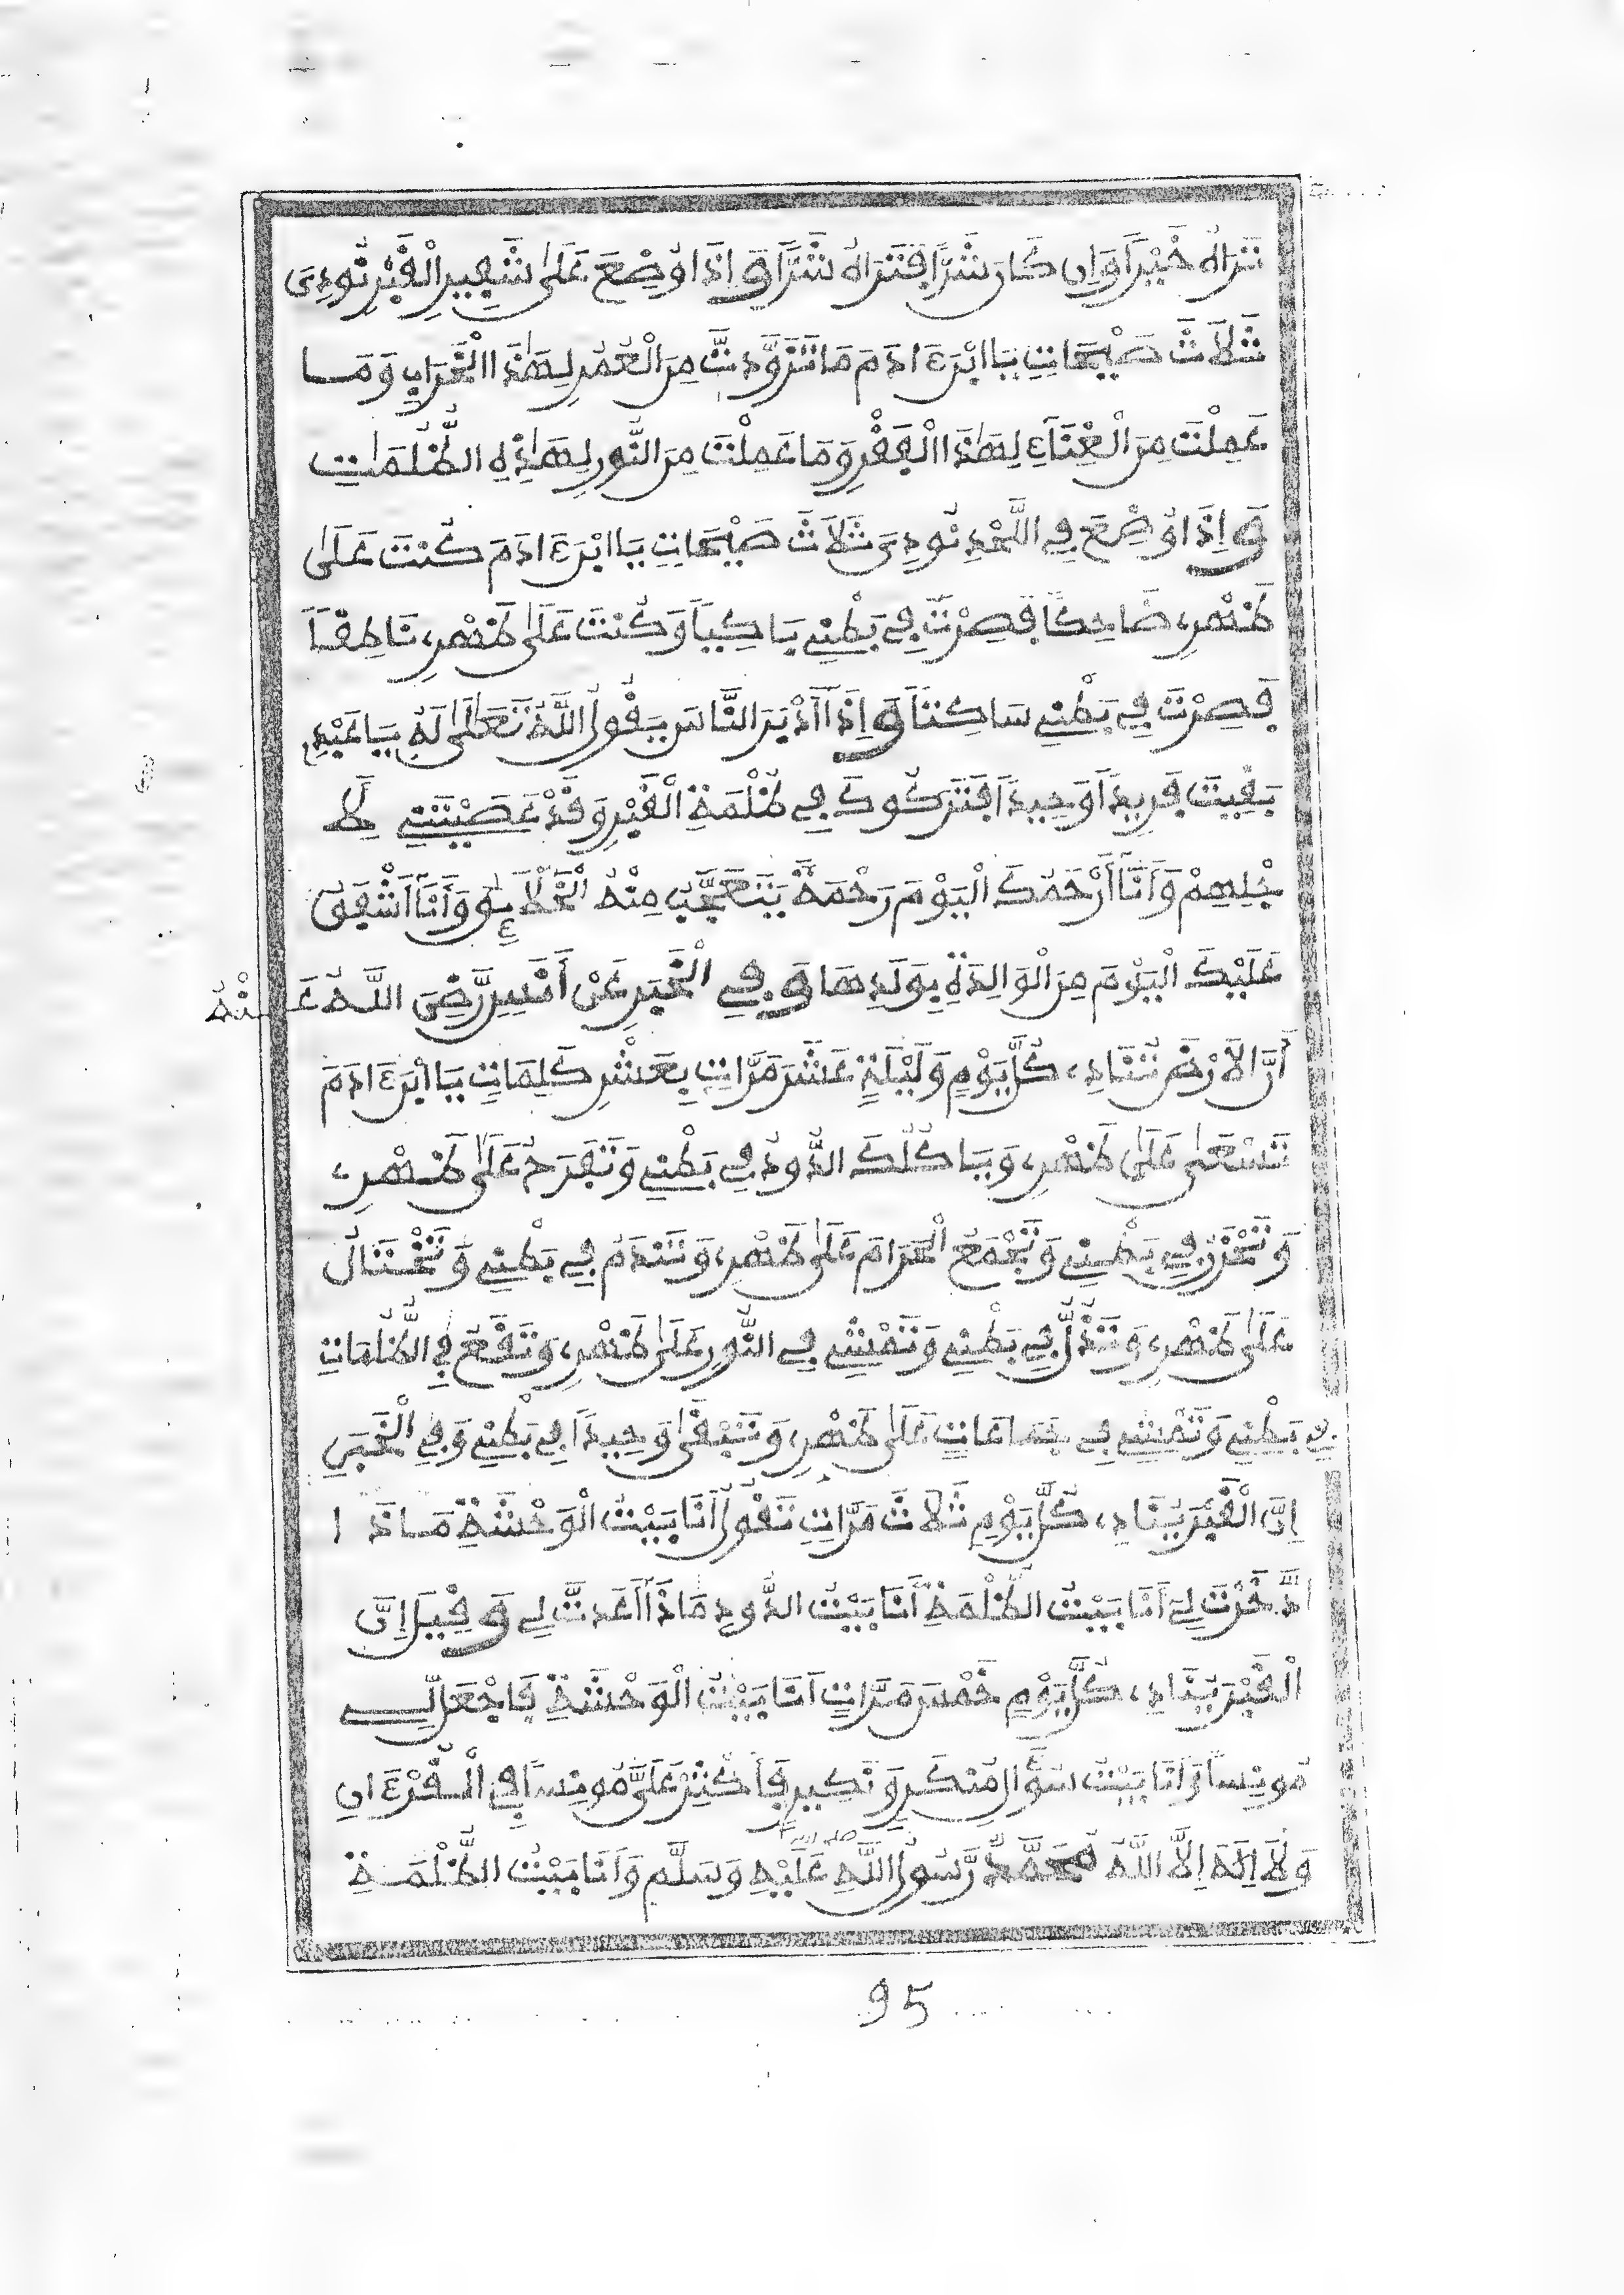 تَرَاهُ خَيْراً وَإِن كَانَ شَرّاً فَتَرَاهُ شَرّاً وَإِذَا وُضِعَ عَلَىٰ شَفِيرِ الْقَبْرِ نُودِيَ
ثَلَاثَ صَيْحَاتٍ يَا ابْنَ ءَادَمَ مَا تَزَوَّدتَّ مِنَ الْعُمْرِ لِهَٰذَا الْخَرَابِ وَمَا
عَمِلْتَ مِنَ الْغِنَآءِ لِهَٰذَا الْفَقْرِ وَمَا عَمِلْتَ مِنَ النُّورِ لِهَٰذِهِ الظُّلُمَاتِ
وَإِذَا وُضِعَ فِي اللَّحْدِ نُودِيَ ثَلَاثَ صَيْحَاتٍ يَا ابْنَ ءَادَمَ كُنْتَ عَلَىٰ
ظَهْرِي ضَاحِكاً فَصِرْتَ فِي بَطْنِي بَاكِياً وَكُنْتَ عَلَىٰ ظَهْرِي نَاطِقاً
فَصِرْتَ فِي بَطْنِي سَاكِتاً وَإِذَا أَدْبَرَ النَّاسُ يَقُولُ اللَّهُ تَعَالَىٰ لَهُ يَا عَبْدِي
بَقِيتَ فَرِيداً وَحِيداً فَتَرَكُوكَ فِي ظُلْمَةِ الْقَبْرِ وَقَدْ عَصَيْتَنِي لِأَ
جْلِهِمْ وَأَنَا أَرْحَمُكَ الْيَوْمَ رَحْمَةً يَتَعَجَّبُ مِنْهُ الْخَلَائِقُ وَأَنَا أَشْفَقُ
عَلَيْكَ الْيَوْمَ مِنَ الْوَالِدَةِ بِوَلَدِهَا وَفِي الْخَبَرِ عَنْ أَنَسٍ رَّضِيَ اللَّهُ عَنْهُ
أَنَّ الْأَرْضَ تُنَادِي كُلَّ يَوْمٍ وَلَيْلَةٍ عَشَرَ مَرَّاتٍ بِعَشْرِ كَلِمَاتٍ يَا ابْنَ ءَادَمَ
تَسْعَىٰ عَلَىٰ ظَهْرِي وَيَاكُلُكَ الدُّودُ فِي بَطْنِي وَتَفْرَحُ عَلَىٰ ظَهْرِي
وَتَحْزَنُ فِي بَطْنِي وَتَجْمَعُ الْحَرَامَ عَلَىٰ ظَهْرِي وَتَنْدَمُ فِي بَطْنِي وَتَخْتَالُ
عَلَىٰ ظَهْرِي وَتَذُلُّ فِي بَطْنِي وَتَمْشِي فِي النُّورِ عَلَىٰ ظَهْرِي وَتَقَعُ فِي الظُّلُمَاتِ
فِي بَطْنِي وَتَمْشِي فِي جَمَاعَاتٍ عَلَىٰ ظَهْرِي وَتَبْقَىٰ وَحِيداً فِي بَطْنِي وَفِي الْخَبَرِ
إِنَّ الْقَبْرَ يُنَادِي كُلَّ يَوْمٍ ثَلَاثَ مَرَّاتٍ تَقُولُ أَنَا بَيْتُ الْوَحْشَةِ مَاذَا
ادَّخَرْتَ لِي أَنَا بَيْتُ الظُّلْمَةِ أَنَا بَيْتُ الدُّودِ مَاذَا أَعْدَدتَّ لِي وَقِيلَ إِنَّ
الْقَبْرَ يُنَادِي كُلَّ يَوْمٍ خَمْسَ مَرَّاتٍ أَنَا بَيْتُ الْوَحْشَةِ فَاجْعَل لِّي
مُونِساً وَأَنَا بَيْتُ سُؤَالِ مُنْكَرٍ وَنَكِيرٍ فَأَكْثِرْ عَلَيَّ مُونِساً فِي الْقُرْءَانِ
وَلَا إِلَٰهَ إِلَّا اللَّهُ مُحَمَّدٌ رَّسُولُ اللَّهِ عَلَيْهِ وَسَلَّمَ وَأَنَا بَيْتُ الظُّلْمَةِ
95